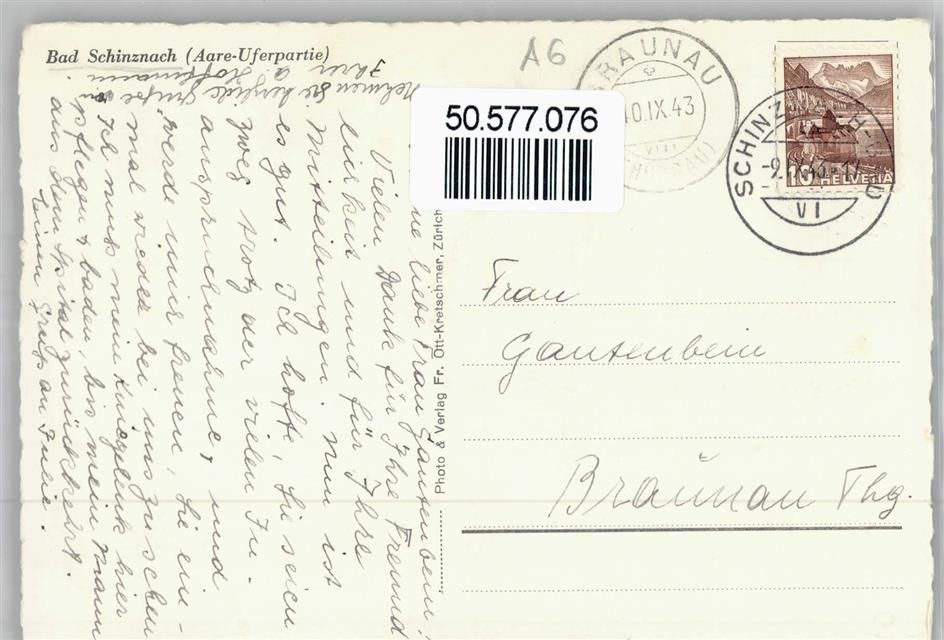 Bad Schinznach (Aare-Uferpartie)
A6
BRAUNAU
10.IX.43
VIII
(THURGAU)
SCHINZNACH-BAD
-9.IX.43-1
VI
10 HELVETIA
50.577.076
Photo & Verlag Fr. Ott-Kretschmer, Zürich
Frau
Gantenbein
Braunau Thg.
liebe Frau Gantenbein!
Vielen Dank für Ihre Freund
lichkeit und für Ihre
Mitteilungen. Nun ist
es gut. Ich hoffe, Sie seien
zweg trotz der vielen In-
anspruchnahme, und
werde mich freuen, Sie ein-
mal wieder bei uns zu sehen
Ich muss mein Kniegelenk hier
pflegen & baden, bis mein Mann
aus dem Spital zurückkehrt.
Einen Gruss an Julie.
Nehmen Sie herzliche Grüsse von
Ihrer a. Hoffmann.